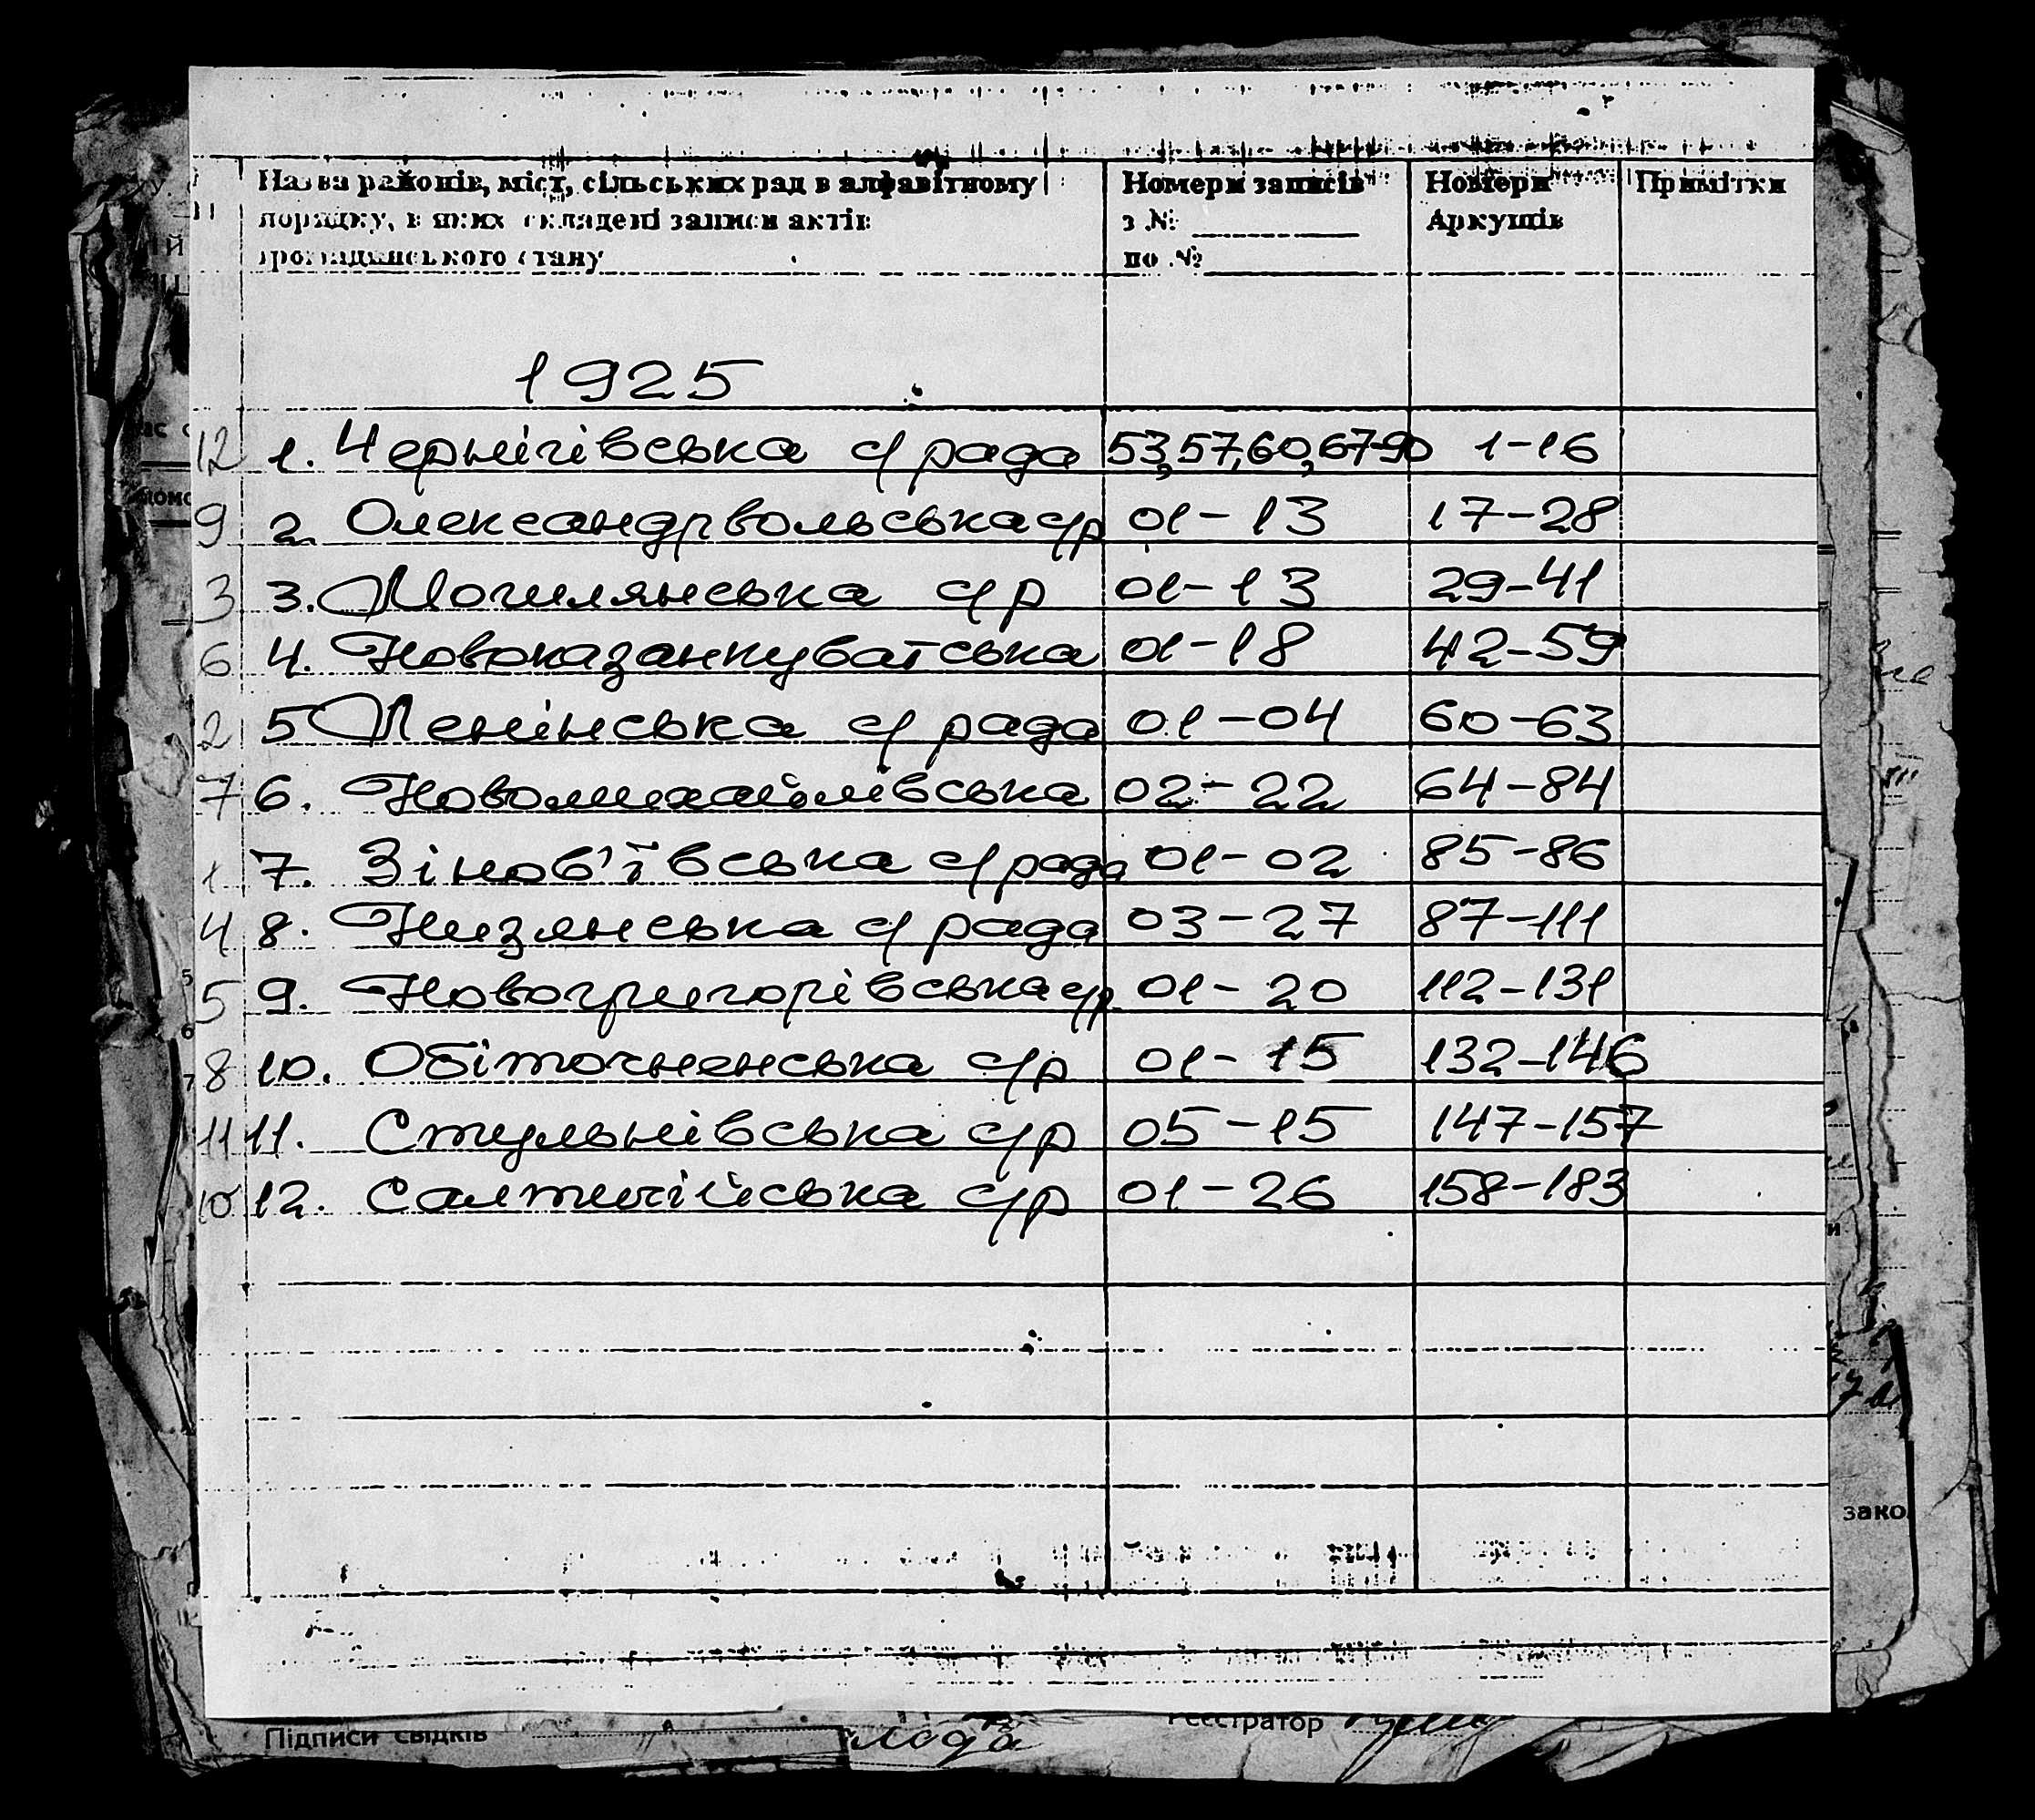 Назва районів, міст, сільських рад в алфавітному порядку, в яких складені записи актів громадянського стану
Номери записів з № ____ по № ____
Номери Аркушів
Примітки
1925
12 1. Чернігівська с/рада 53,57,60,67-90 1-16
9 2. Олександрвольська с/р 01-13 17-28
3 3. Могилянська с/р 01-13 29-41
6 4. Новоказанкуватська 01-18 42-59
2 5 Ленінська с/рада 01-04 60-63
7 6. Новомихайлівська 02-22 64-84
1 7. Зінов'ївська с/рада 01-02 85-86
4 8. Низянська с/рада 03-27 87-111
5 9. Новогригорівська с/р 01-20 112-131
8 10. Обіточненська с/р 01-15 132-146
11 11. Стульнівська с/р 05-15 147-157
10 12. Салтичійська с/р 01-26 158-183
зако
Підписи свідків
Реєстратор